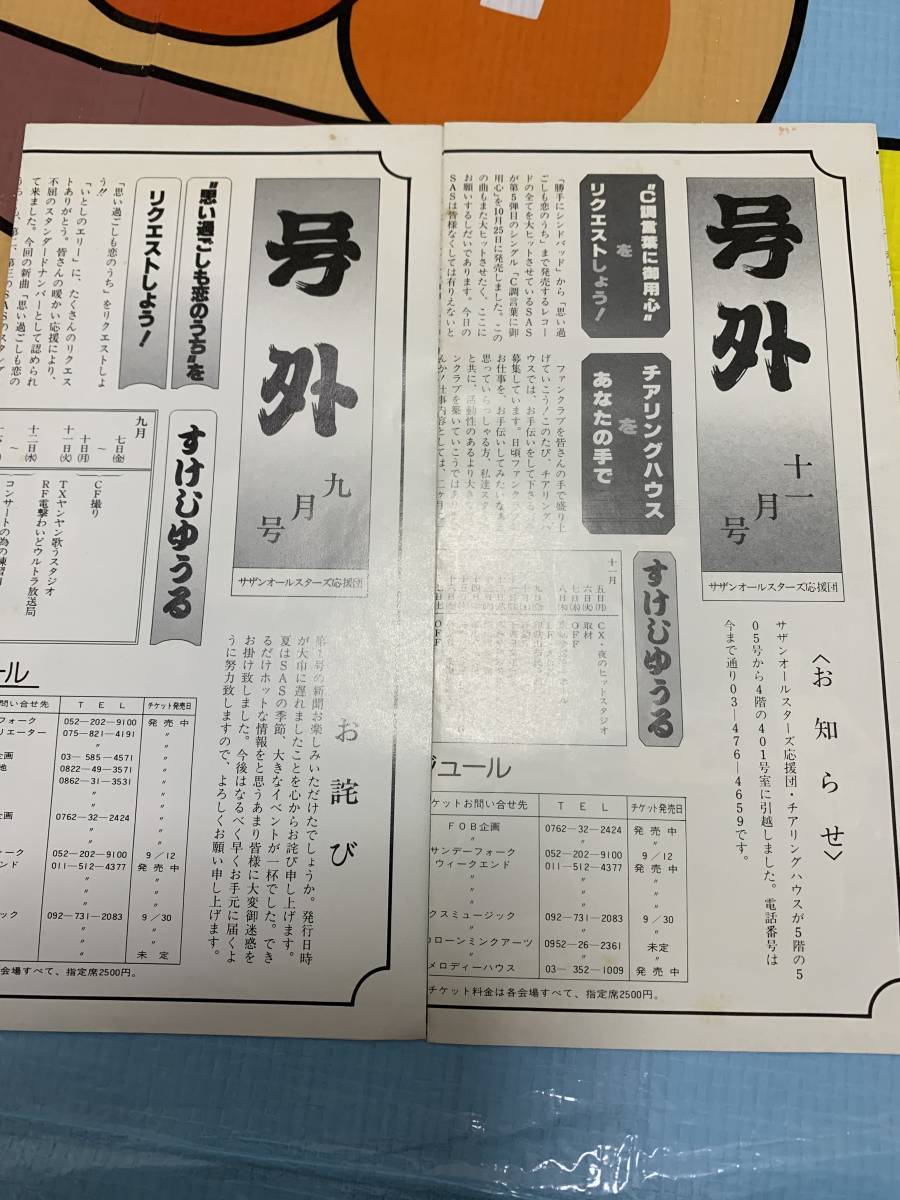 号外
十一月号
サザンオールスターズ応援団
〈お知らせ〉
サザンオールスターズ応援団・チアリングハウスが5階の5
05号から4階の401号室に引越しました。電話番号は
今まで通り03-476-4659です。
“C調言葉に御用心”
を
リクエストしよう!
「勝手にシンドバッド」から「思い過
ごしも恋のうち」まで発売するレコー
ドの全てを大ヒットさせているSAS
が第5弾目のシングル「C調言葉に御
用心」を10月25日に発売しました。この
の曲もまた大ヒットさせたく、ここに
お願いするしだいであります。今日の
SASは皆様なくしては有りえないと
チアリングハウス
を
あなたの手で
ファンクラブを皆さんの手で盛り上
げていこう!このたび、チアリング
ウスでは、お手伝いをして下さる
募集しています。日頃ファンクラ
お仕事を、お手伝いしてみたいなあ
思っていらっしゃる方、私達スタ
と共に、活動性のあるより大き
ンクラブを築いていこうではあり
んか!仕事内容としては、二ヶ月
すけじゅうる
十一月
五日(月) CX・夜のヒットスタジオ
六日(火) 取材
七日(水) OFF
八日(木)
OFF
ジュール
ケットお問い合せ先 TEL チケット発売日
FOB企画 0762-32-2424 発売中
〃 〃
サンデーフォーク 052-202-9100 9/12
ウィークエンド 011-512-4377 発売中
〃 〃
〃 〃
クスミュージック 092-731-2083 9/30
〃
カローンミンクアーツ 0952-26-2361 未定
メロディーハウス 03-352-1009 発売中
チケット料金は各会場すべて、指定席2500円。
号外
九月号
サザンオールスターズ応援団
“思い過ごしも恋のうち”を
リクエストしよう!
「思い過ごしも恋のうち」をリクエストしよ
う!!
「いとしのエリー」に、たくさんのリクエス
トありがとう。皆さんの暖かい応援により、
不屈のスタンダードナンバーとして認められ
て来ました。今回の新曲「思い過ごしも恋の
すけじゅうる
九月
七日(金) CF撮り
〜
十日(月)
十一日(火) TXヤンヤン歌うスタジオ
十二日(水) RF電撃わいどウルトラ放送局
〜 コンサートの為の練習
お詫び
第1号の新聞お楽しみいただけたでしょうか。発行日時
が大巾に遅れましたことを心からお詫び申し上げます。
夏はSASの季節、大きなイベントが一杯でした。でき
るだけホットな情報をと思うあまり皆様に大変御迷惑を
お掛け致しました。今後はなるべく早くお手元に届くよ
うに努力致しますので、よろしくお願い申し上げます。
ール
お問い合せ先 TEL チケット発売日
フォーク 052-202-9100 発売中
リエーター 075-821-4191 〃
〃 〃
企画 03-585-4571 〃
地 0822-49-3571 〃
0862-31-3531 〃
〃
企画 0762-32-2424 〃
〃 〃
ーク 052-202-9100 9/12
ンド 011-512-4377 発売中
〃 〃
〃 〃
ック 092-731-2083 9/30
〃 〃
〃 未定
会場すべて、指定席2500円。